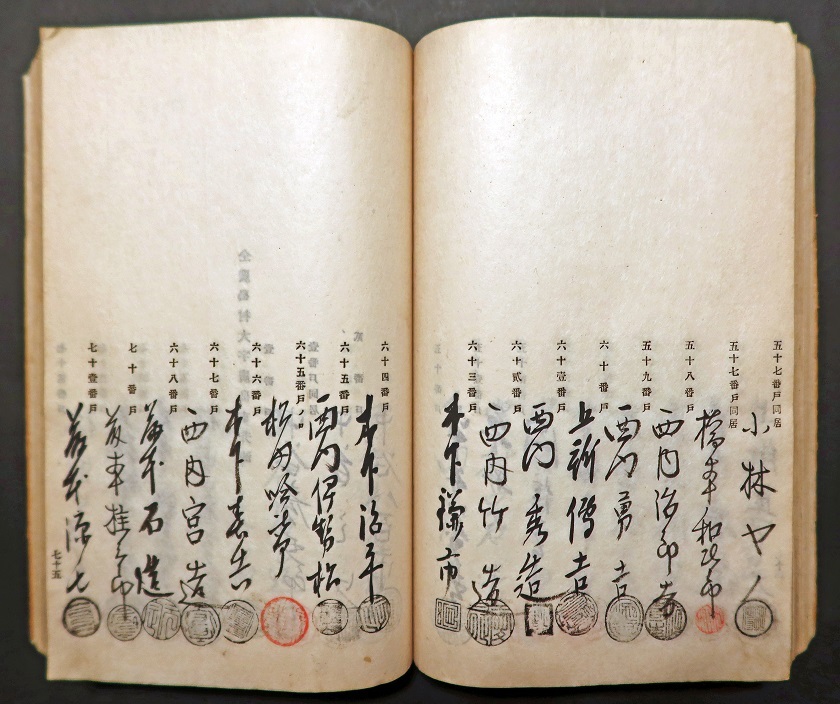 五十七番戸同居
小林ヤノ
五十七番戸同居
橋本和次郎
五十八番戸
西内治郎吉
五十九番戸
西内勇吉
六十番戸
上新傳吉
六十壹番戸
西内秀造
六十貳番戸
西内竹造
六十三番戸
木下鎌市
六十四番戸
木下治平
六十五番戸
西内伊勢松
六十五番戸ノ口
松田
六十六番戸
木下春吉
六十七番戸
西内宮造
六十八番戸
石造
七十番戸
七十壹番戸
七十五